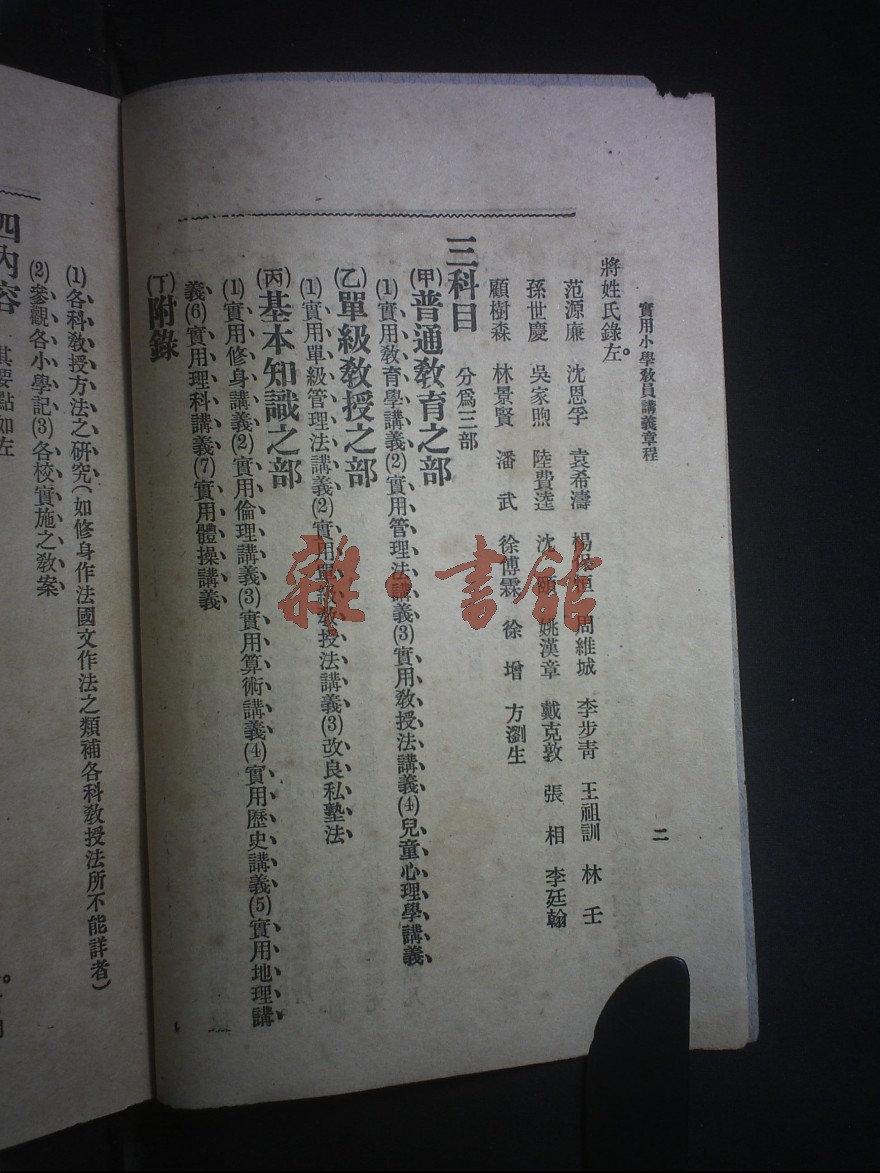 實用小學教員講義章程
二
將姓氏錄左。
范源廉 沈恩孚 袁希濤 楊保恒 周維城 李步青 王祖訓 林壬
孫世慶 吳家煦 陸費逵 沈頤 姚漢章 戴克敦 張相 李廷翰
顧樹森 林景賢 潘武 徐傅霖 徐增 方瀏生
三科目 分爲三部
(甲)普通教育之部
(1)實用教育學講義(2)實用管理法講義(3)實用教授法講義(4)兒童心理學講義
(乙)單級教授之部
(1)實用單級管理法講義(2)實用單級教授法講義(3)改良私塾法
(丙)基本知識之部
(1)實用修身講義(2)實用倫理講義(3)實用算術講義(4)實用歷史講義(5)實用地理講
義(6)實用理科講義(7)實用體操講義
(丁)附錄
(1)各科教授方法之研究(如修身作法國文作法之類補各科教授法所不能詳者)
(2)參觀各小學記(3)各校實施之教案
四內容 其要點如左
雜·書館